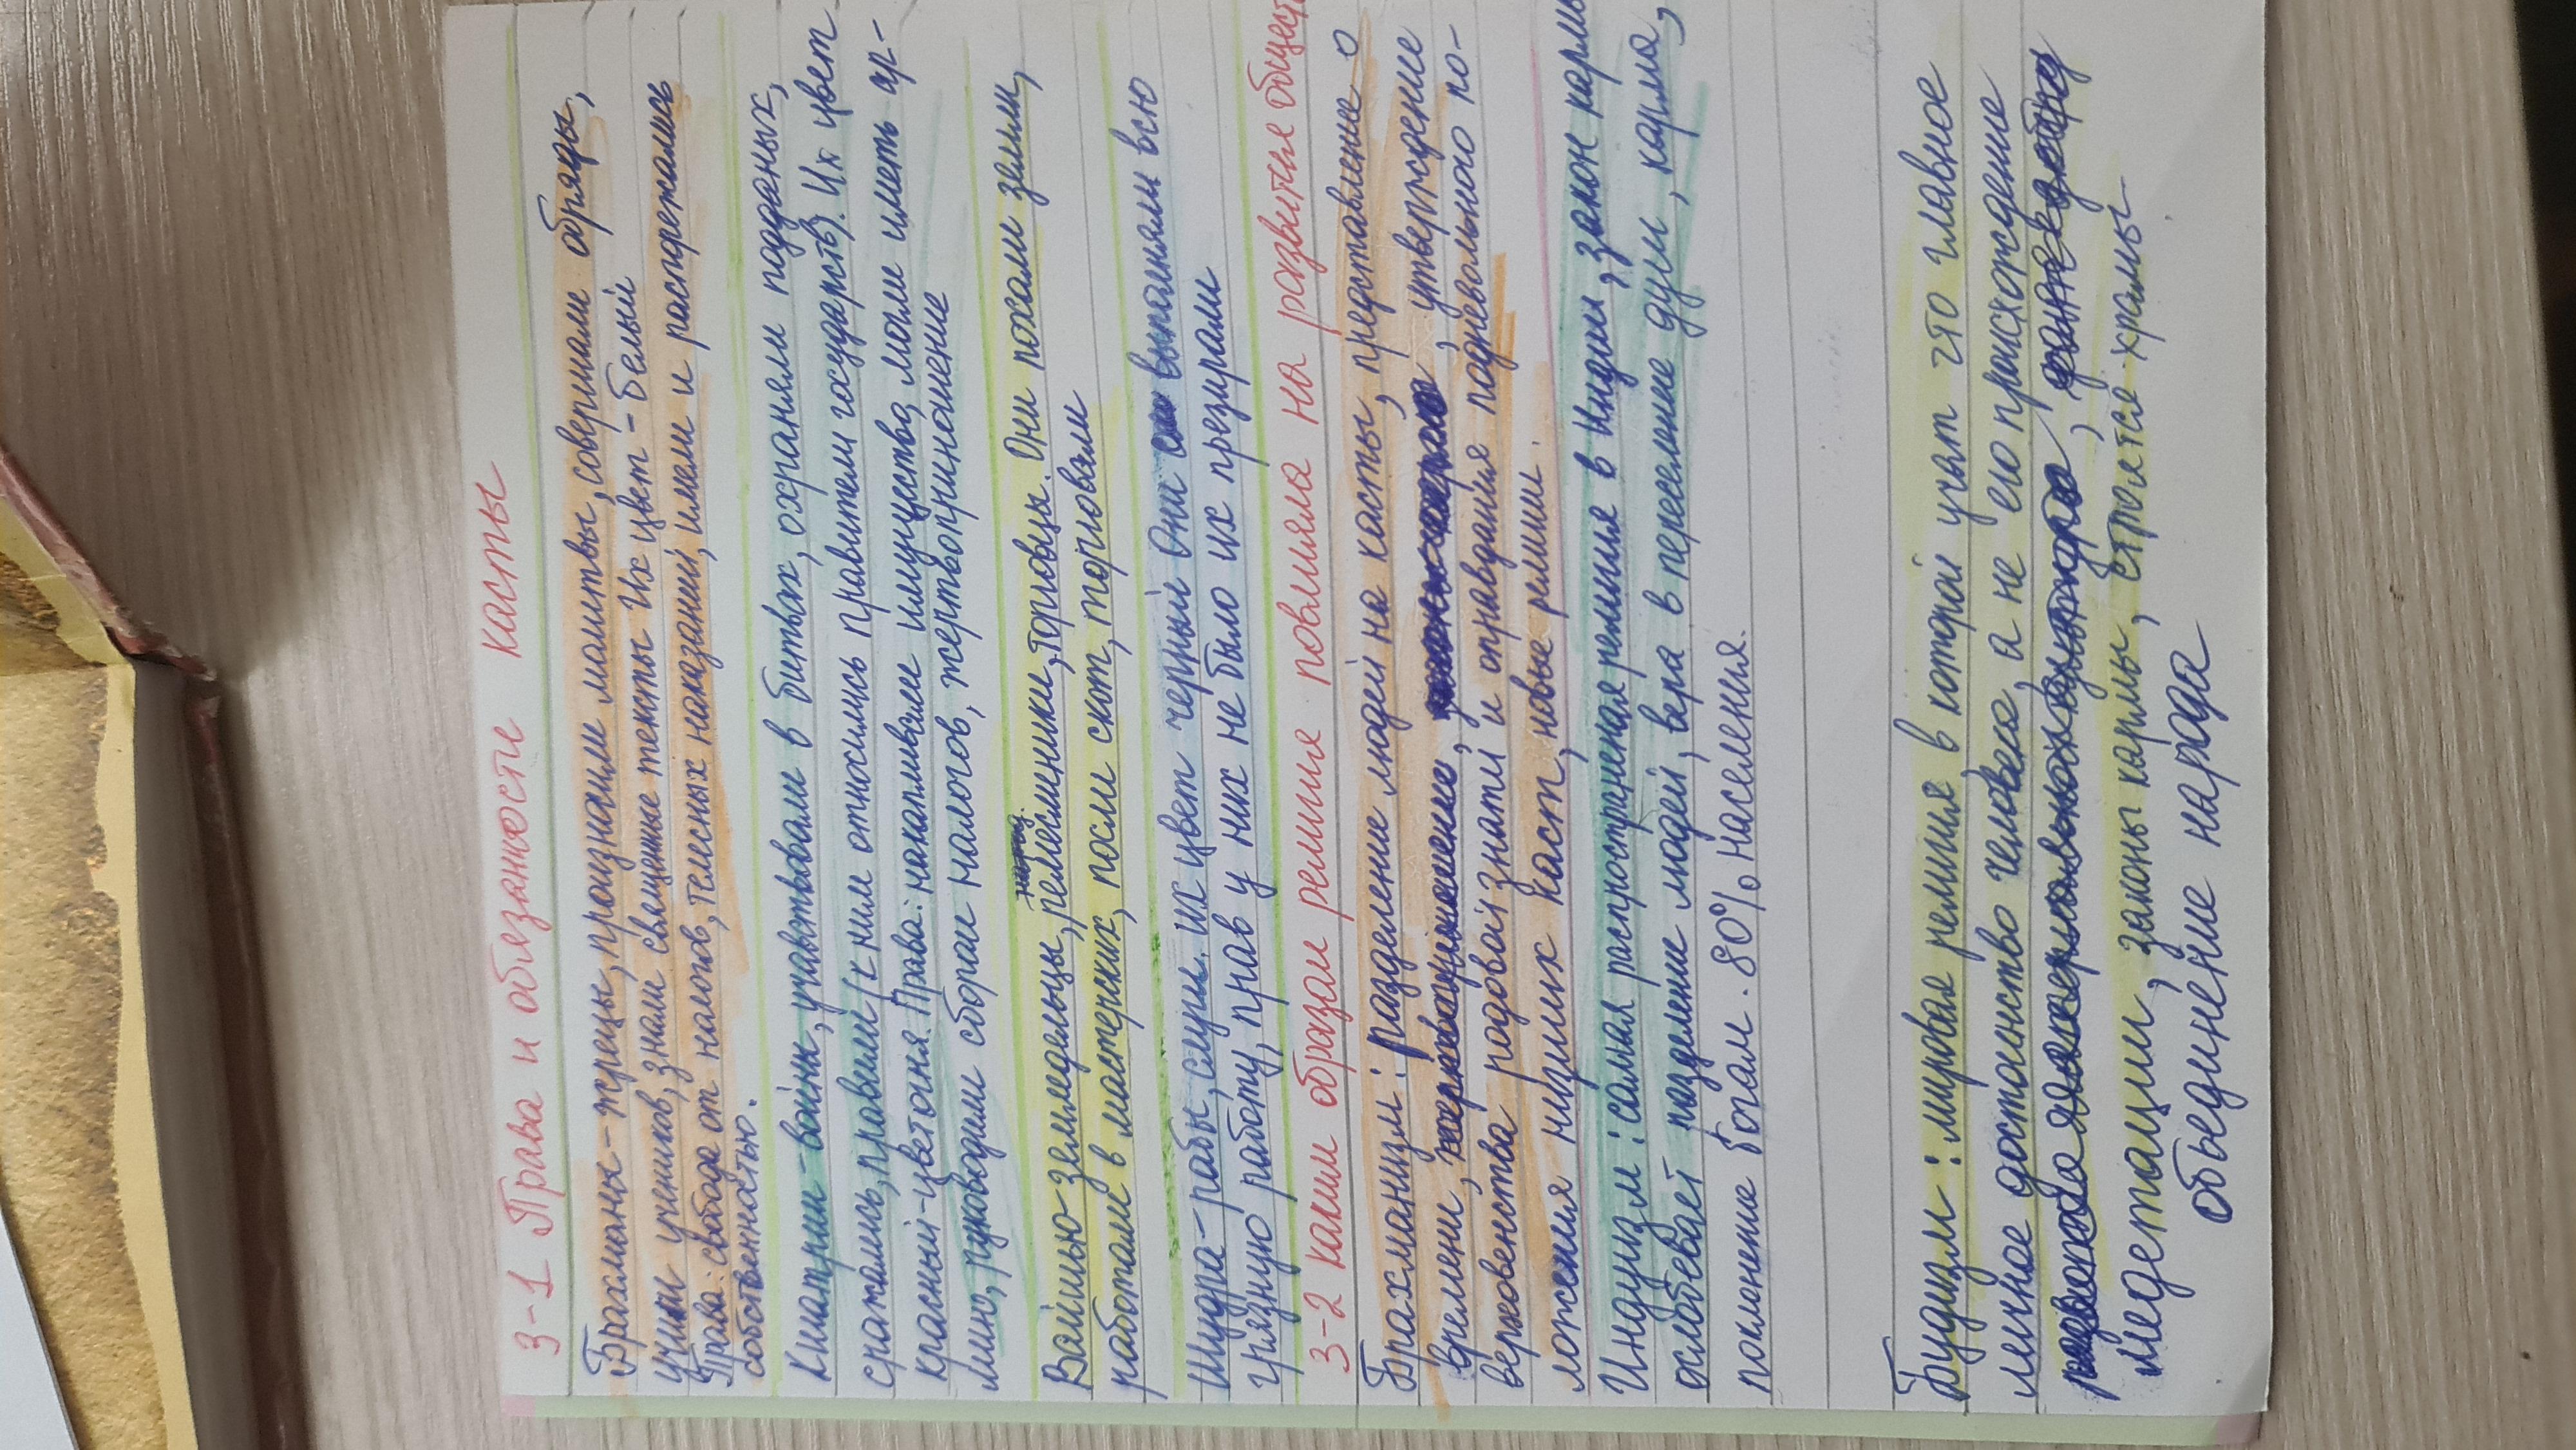 3-1 Права и обязанности касты
Брахманы - жрецы, произнасили молитвы, совершали обряды,
учили учеников, знали священные тексты Их цвет - белый
Права: свобода от налогов, телесных наказаний, имели и распоряжались
собственностью.
Кшатрии - войны, учавствовали в битвах, охраняли подданых,
сражались, правили (к ним относились правители государств). Их цвет
красный-цвет огня. Права: накапливали имущество, могли иметь ар-
мию, руководили сбором налогов, жертвоприношение
Вайшью-земледельцы, ремесленники, торговцы. Они похали земли,
работали в мастерских, посли скот, торговали
Шудра-рабы, слуги. их цвет черный Они выполняли всю
грязную работу, прав у них не было их презирали
3-2 каким образом религия повлияла на развитие общест
Брахманизм: разделение людей на касты, представление о
времени, утверждение
верховенства родовой знати и оправдания подневольного по-
ложения низших каст, новые религии.
Индуизм: самая распространеная религия в Индии, закон кармы
ослабевает разделение людей, вера в переселение души, карма,
поклонение богам. 80% населения.
Будизм: мировая религия в которой учат что главное
личное достоинство человека, а не его происхождение
медетации, законы кармы, строятся храмы.
объединение народа